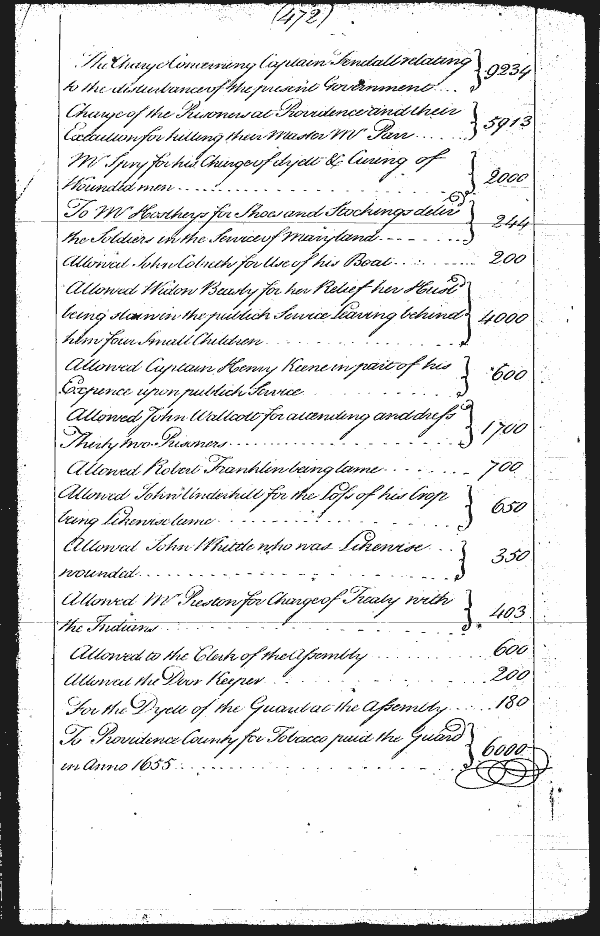 (472)
The Charge Concerning Captain Fendall relating
to the disturbance of the present Government } 9234
Charge of the Prisoners at Providence and their
Execution for killing their Master Mr Parr } 5913
Mr Spry for his Charge of dyett & Cureing of
Wounded men } 2000
To Mr Hostheys for Shoes and Stockings deliv'd
the Soldiers in the Service of Maryland } 244
Allowed John Cobreth for Use of his Boat 200
Allowed Widow Beasly for her Relief her Husb'd
being slain in the publick Service Leaving behind
him four Small Children } 4000
Allowed Captain Henry Keene in part of his
Expence upon publick Service } 600
Allowed John Wallcott for attending and dress'g
Thirty two Prisoners } 1700
Allowed Robert Franklin being lame 700
Allowed John Underhill for the Loss of his Crop
being Likewise lame } 650
Allowed John Whittle who was Likewise
wounded } 350
Allowed Mr Preston for Charge of Treaty with
the Indians } 403
Allowed to the Clerk of the Assembly 600
Allowed the Door Keeper 200
For the Dyett of the Guard at the Assembly 180
To Providence County for Tobacco paid the Guard
in Anno 1655 } 6000